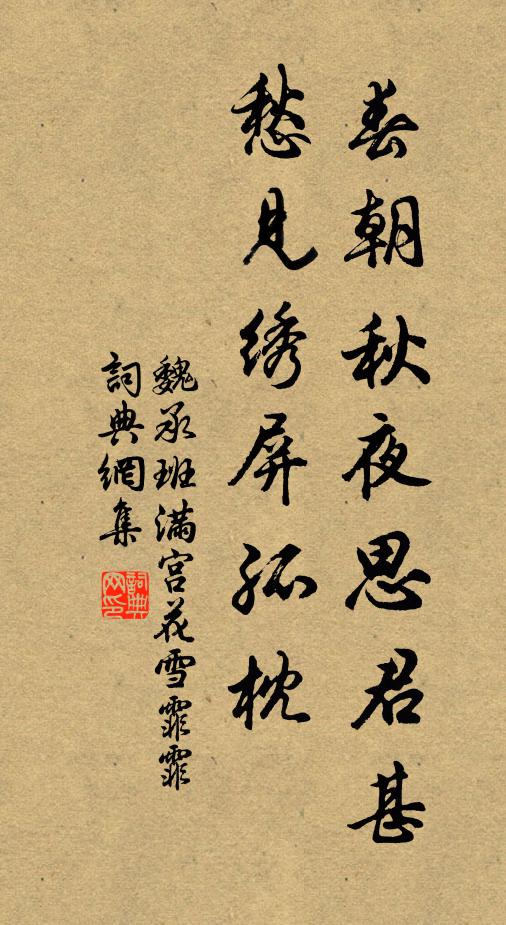 春朝秋夜思君甚
愁見绣屏孤枕
魏承班满宫花雪霏霏
詞典網集
詞典网印